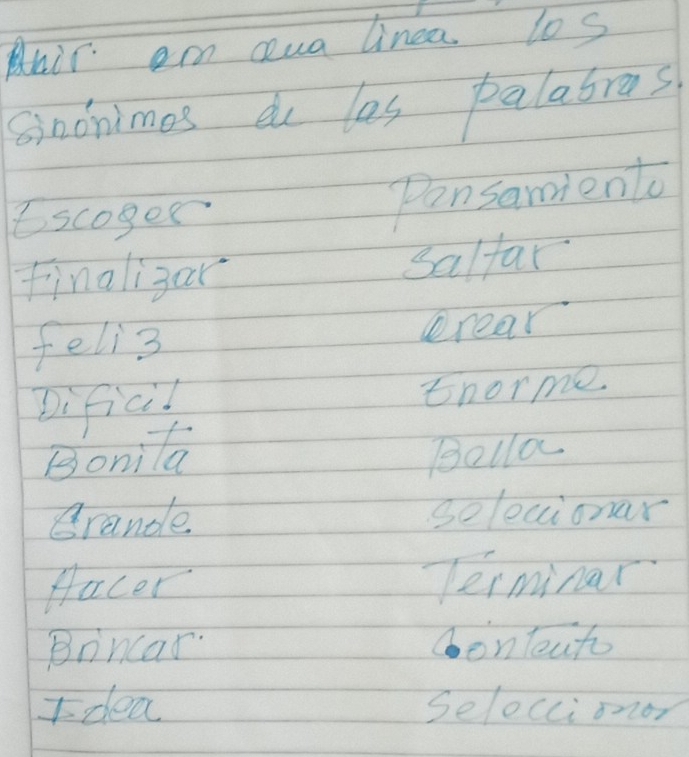 Unir em cua linea los
Sinónimos de las palabras.
Escoger Pensamiento
Finalizar Saltar
feliz Crear
Dificil Enorme
Bonita Bella
Grande seleccionar
Hacer Terminar
Brincar. Contento
Idea Seleccionar